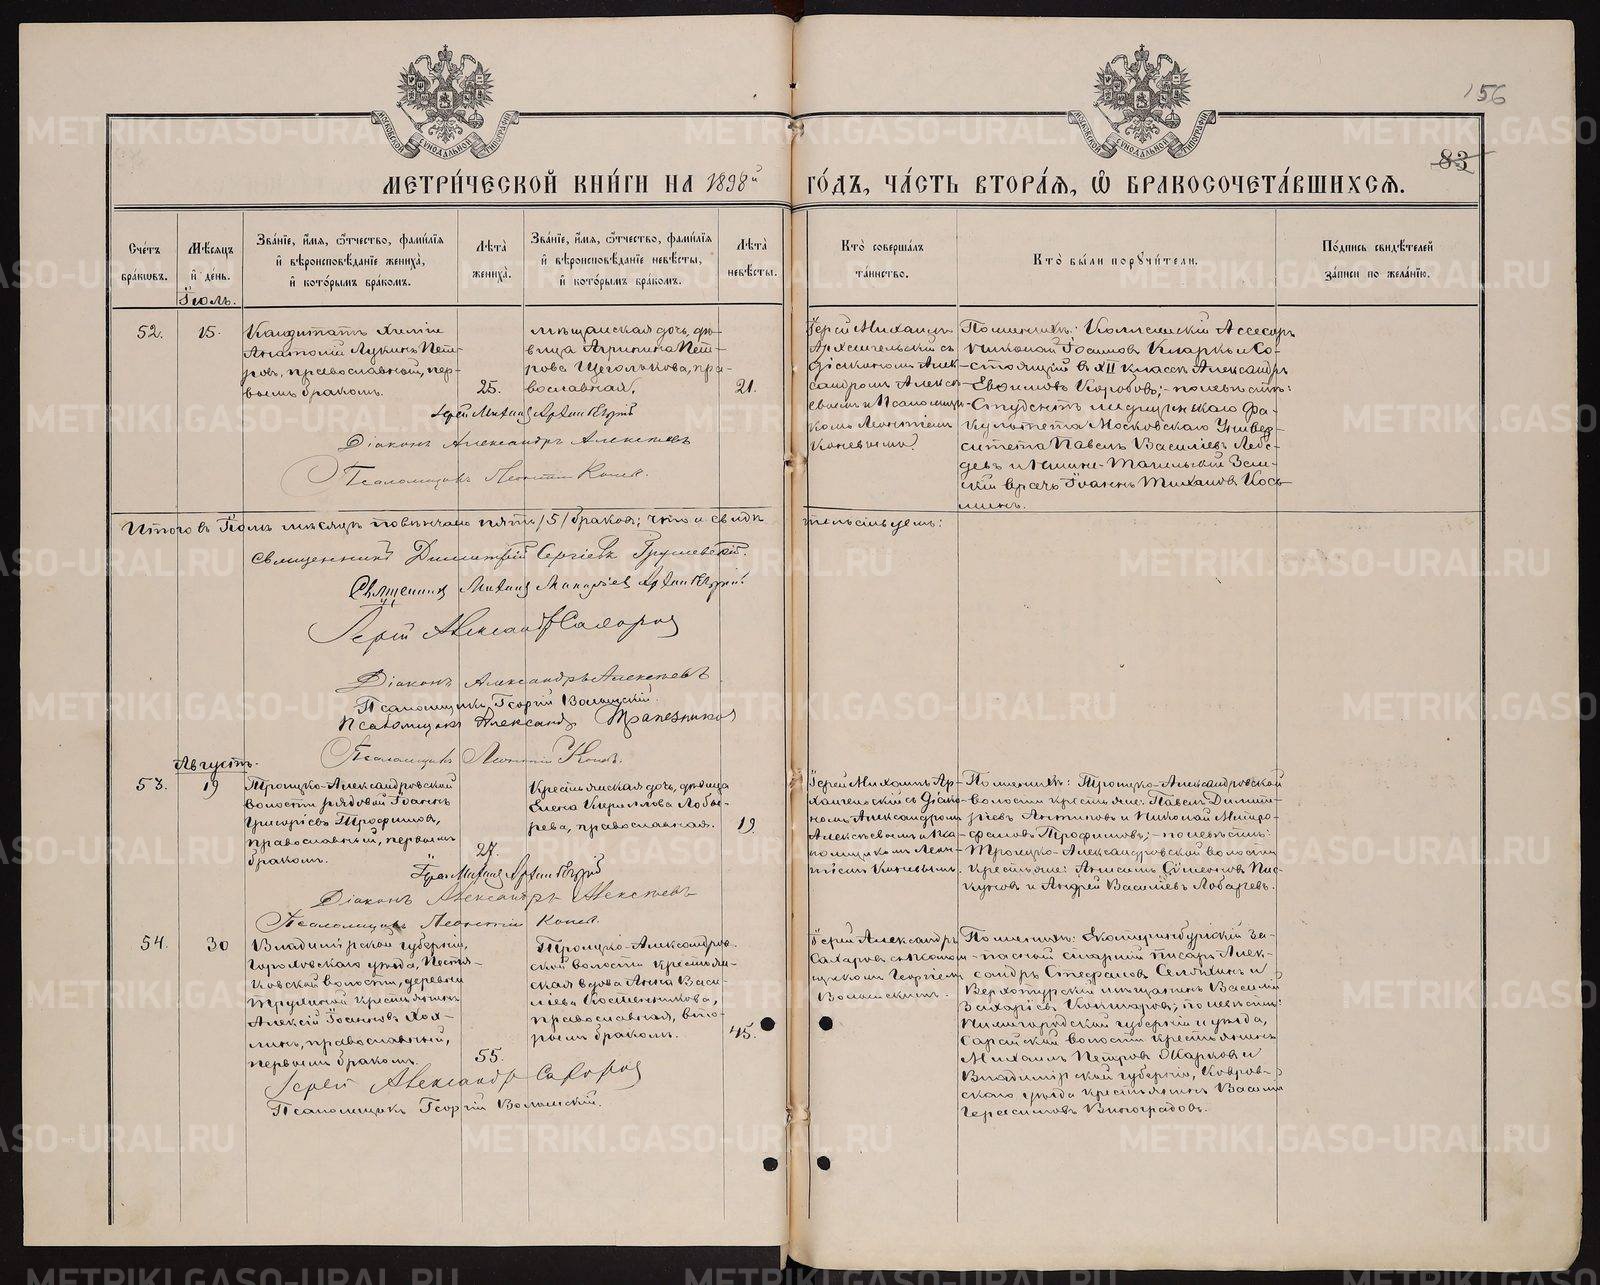 156
83
МОСКОВСКОЙ СѴНОДАЛЬНОЙ ТИПОГРАФІИ
МОСКОВСКОЙ СѴНОДАЛЬНОЙ ТИПОГРАФІИ
МЕТРИ́ЧЕСКОЙ КНИ́ГИ НА 1898й ГО́ДЪ, ЧА́СТЬ ВТОРА́Ѧ, Ѽ БРАКОСОЧЕТА́ВШИХСѦ.
Счетъ браковъ.
Мѣсяцъ и день.
Званіе, имя, отчество, фамилія и вѣроисповѣданіе жениха, и которымъ бракомъ.
Лѣта жениха.
Званіе, имя, отчество, фамилія и вѣроисповѣданіе невѣсты, и которымъ бракомъ.
Лѣта невѣсты.
Кто совершалъ таинство.
Кто были поручители.
Подпись свидѣтелей записи по желанію.
Іюль.
52.
15.
Кандидатъ химіи
Анатолій Лукинъ Пет-
ровъ, православный, пер-
вымъ бракомъ.
25.
мѣщанская дочь, дѣ-
вица Агрипина Пет-
рова Щеголькова, пра-
вославная.
21.
Іерей Михаилъ
Архангельскій съ
діакономъ Алек-
сандромъ Алексѣ-
евымъ и Псаломщи-
комъ Леонтіемъ
Коневымъ.
По женихѣ: Коллежскій Ассесоръ
Николай Іоакимовъ Кларкъ и Со-
стоящій въ XII классѣ Александръ
Евфимовъ Коробовъ; - по невѣстѣ:
Студентъ медицинскаго Фа-
культета Московскаго Универ-
ситета Павелъ Васильевъ Лебе-
девъ и Нижне-Тагильскій Зем-
скій врачъ Іоаннъ Тихановъ Кось-
минъ.
Іерей Михаилъ Архангельскій
Діаконъ Александръ Алексѣевъ
Псаломщикъ Леонтій Коневъ.
Итого въ Іюлѣ мѣсяцѣ повѣнчано пять /5/ браковъ; что и свидѣ
тельствуемъ:
Священникъ Димитрій Сергіевъ Грушевскій.
Священникъ Михаилъ Макаріевъ Архангельскій.
Іерей Александръ Сахаровъ
Діаконъ Александръ Алексѣевъ
Псаломщикъ Георгій Волынскій.
Псаломщикъ Александръ Трапезниковъ
Псаломщикъ Леонтій Коневъ.
Августъ.
53.
19
Троицко-Александровской
волости рядовой Іоаннъ
Григорьевъ Трофимовъ,
православный, первымъ
бракомъ.
27.
Крестьянская дочь, дѣвица
Елена Кириллова Лоба-
рева, православная.
19
Іерей Михаилъ Ар-
хангельскій съ Діако-
номъ Александромъ
Алексѣевымъ и Пса-
ломщикомъ Леон-
тіемъ Коневымъ.
По женихѣ: Троицко-Александровской
волости крестьяне: Павелъ Димит-
ріевъ Антиповъ и Николай Митро-
фановъ Трофимовъ; - по невѣстѣ:
Троицко-Александровской волости
крестьяне: Анисимъ Сѵмеоновъ Пис-
куновъ и Андрей Василіевъ Лобаревъ.
Іерей Михаилъ Архангельскій
Діаконъ Александръ Алексѣевъ
Псаломщикъ Леонтій Коневъ.
54.
30
Владимірской губерніи,
Гороховскаго уѣзда,
волости, деревни
крестьянинъ
Алексій Іоанновъ Хох-
линъ, православный,
первымъ бракомъ.
55.
Троицко-Александров-
ской волости крестьян-
ская вдова Анна Васи-
ліева Постенникова,
православная, вто-
рымъ бракомъ.
45.
Іерей Александръ
Сахаровъ съ Псалом-
щикомъ Георгіемъ
Волынскимъ.
По женихѣ: Екатеринбургскій за-
пасной старшій писарь Алек-
сандръ Стефановъ Селянкинъ и
Верхотурскій мѣщанинъ Василій
Захаріевъ Кошкаровъ; по невѣстѣ:
Нижегородской губерніи и уѣзда,
волости крестьянинъ
Михаилъ Петровъ Жарковъ и
Владимірской губерніи, Ковров-
скаго уѣзда крестьянинъ Василій
Герасимовъ Виноградовъ.
Іерей Александръ Сахаровъ
Псаломщикъ Георгій Волынскій.
METRIKI.GASO-URAL.RU